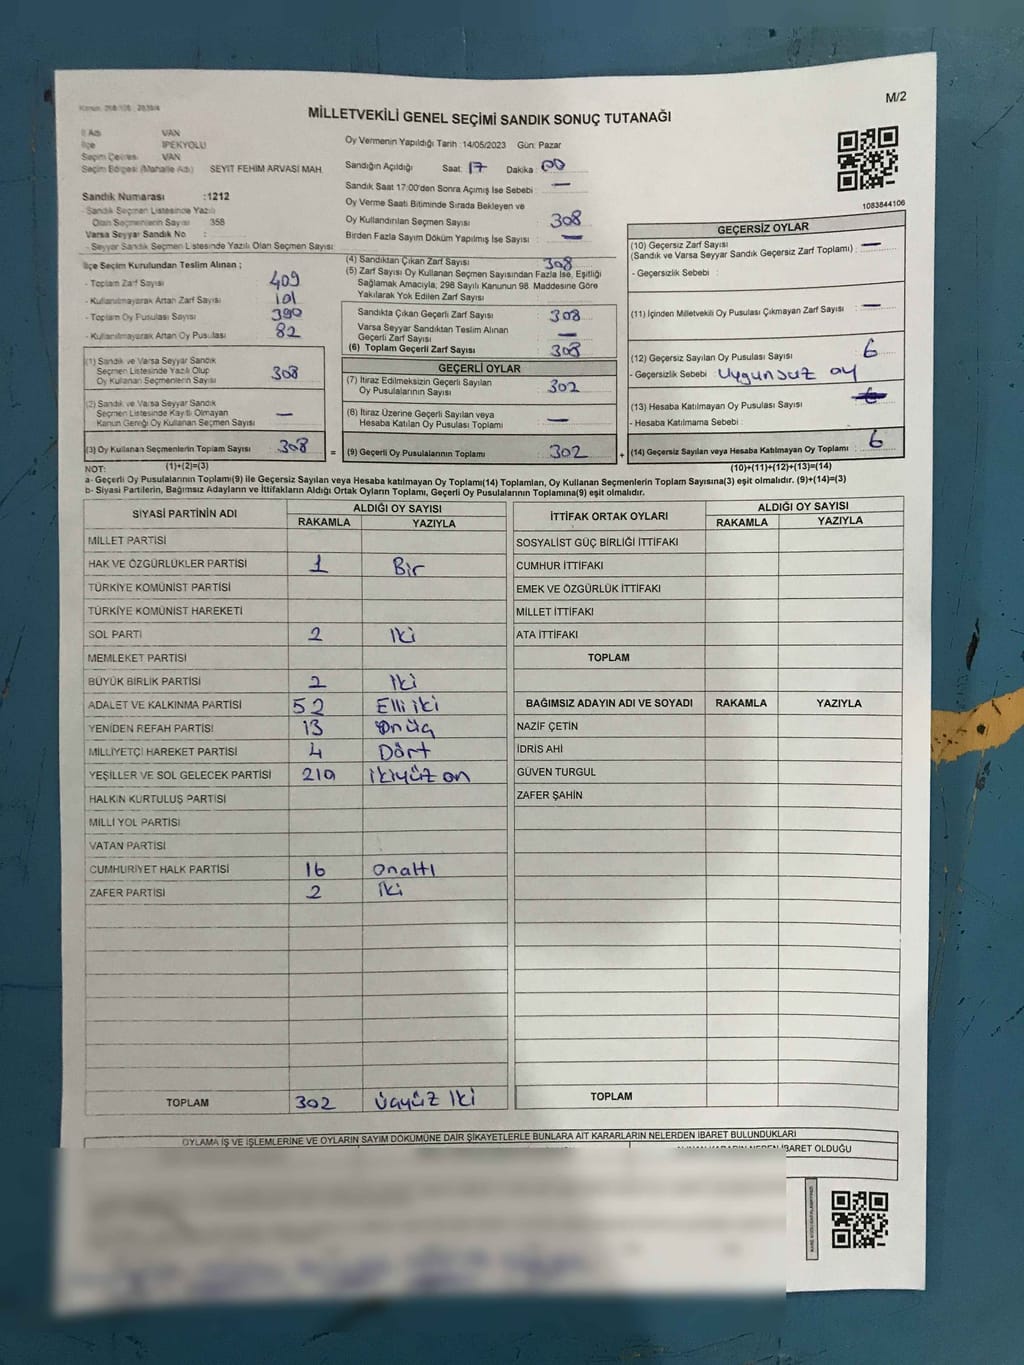 M/2
MİLLETVEKİLİ GENEL SEÇİMİ SANDIK SONUÇ TUTANAĞI
İl Adı VAN
İlçe İPEKYOLU
Seçim Çevresi VAN
Seçim Bölgesi (Mahalle Adı) SEYİT FEHİM ARVASİ MAH.
Sandık Numarası :1212
- Sandık Seçmen Listesinde Yazılı
Olan Seçmenlerin Sayısı 358
Varsa Seyyar Sandık No :
- Seyyar Sandık Seçmen Listesinde Yazılı Olan Seçmen Sayısı :
Oy Vermenin Yapıldığı Tarih :14/05/2023 Gün: Pazar
Sandığın Açıldığı Saat: 17 Dakika: 00
Sandık Saat 17:00'den Sonra Açılmış İse Sebebi : —
Oy Verme Saati Bitiminde Sırada Bekleyen ve
Oy Kullandırılan Seçmen Sayısı 308
Birden Fazla Sayım Döküm Yapılmış İse Sayısı : —
1083844106
İlçe Seçim Kurulundan Teslim Alınan ;
- Toplam Zarf Sayısı 409
- Kullanılmayarak Artan Zarf Sayısı 101
- Toplam Oy Pusulası Sayısı 390
- Kullanılmayarak Artan Oy Pusulası 82
(1) Sandık ve Varsa Seyyar Sandık
Seçmen Listesinde Yazılı Olup
Oy Kullanan Seçmenlerin Sayısı 308
(2) Sandık ve Varsa Seyyar Sandık
Seçmen Listesinde Kayıtlı Olmayan
Kanun Gereği Oy Kullanan Seçmen Sayısı —
(3) Oy Kullanan Seçmenlerin Toplam Sayısı 308
(4) Sandıktan Çıkan Zarf Sayısı 308
(5) Zarf Sayısı Oy Kullanan Seçmen Sayısından Fazla İse, Eşitliği
Sağlamak Amacıyla, 298 Sayılı Kanunun 98. Maddesine Göre
Yakılarak Yok Edilen Zarf Sayısı
Sandıkta Çıkan Geçerli Zarf Sayısı 308
Varsa Seyyar Sandıktan Teslim Alınan
Geçerli Zarf Sayısı —
(6) Toplam Geçerli Zarf Sayısı 308
GEÇERLİ OYLAR
(7) İtiraz Edilmeksizin Geçerli Sayılan
Oy Pusulalarının Sayısı 302
(8) İtiraz Üzerine Geçerli Sayılan veya
Hesaba Katılan Oy Pusulası Toplamı —
= (9) Geçerli Oy Pusulalarının Toplamı 302 +
GEÇERSİZ OYLAR
(10) Geçersiz Zarf Sayısı
(Sandık ve Varsa Seyyar Sandık Geçersiz Zarf Toplamı) : —
- Geçersizlik Sebebi :
(11) İçinden Milletvekili Oy Pusulası Çıkmayan Zarf Sayısı : —
(12) Geçersiz Sayılan Oy Pusulası Sayısı 6
- Geçersizlik Sebebi : Uygunsuz oy
(13) Hesaba Katılmayan Oy Pusulası Sayısı
- Hesaba Katılmama Sebebi :
(14) Geçersiz Sayılan veya Hesaba Katılmayan Oy Toplamı : 6
NOT: (1)+(2)=(3) (10)+(11)+(12)+(13)=(14)
a- Geçerli Oy Pusulalarının Toplamı(9) ile Geçersiz Sayılan veya Hesaba katılmayan Oy Toplamı(14) Toplamları, Oy Kullanan Seçmenlerin Toplam Sayısına(3) eşit olmalıdır. (9)+(14)=(3)
b- Siyasi Partilerin, Bağımsız Adayların ve İttifakların Aldığı Ortak Oyların Toplamı, Geçerli Oy Pusulalarının Toplamına(9) eşit olmalıdır.
SİYASİ PARTİNİN ADI ALDIĞI OY SAYISI
RAKAMLA YAZIYLA
MİLLET PARTİSİ
HAK VE ÖZGÜRLÜKLER PARTİSİ 1 Bir
TÜRKİYE KOMÜNİST PARTİSİ
TÜRKİYE KOMÜNİST HAREKETİ
SOL PARTİ 2 iki
MEMLEKET PARTİSİ
BÜYÜK BİRLİK PARTİSİ 2 iki
ADALET VE KALKINMA PARTİSİ 52 Elli iki
YENİDEN REFAH PARTİSİ 13 Onüç
MİLLİYETÇİ HAREKET PARTİSİ 4 Dört
YEŞİLLER VE SOL GELECEK PARTİSİ 210 ikiyüz on
HALKIN KURTULUŞ PARTİSİ
MİLLİ YOL PARTİSİ
VATAN PARTİSİ
CUMHURİYET HALK PARTİSİ 16 onaltı
ZAFER PARTİSİ 2 iki
TOPLAM 302 üçyüz iki
İTTİFAK ORTAK OYLARI ALDIĞI OY SAYISI
RAKAMLA YAZIYLA
SOSYALİST GÜÇ BİRLİĞİ İTTİFAKI
CUMHUR İTTİFAKI
EMEK VE ÖZGÜRLÜK İTTİFAKI
MİLLET İTTİFAKI
ATA İTTİFAKI
TOPLAM
BAĞIMSIZ ADAYIN ADI VE SOYADI RAKAMLA YAZIYLA
NAZİF ÇETİN
İDRİS AHİ
GÜVEN TURGUL
ZAFER ŞAHİN
TOPLAM
OYLAMA İŞ VE İŞLEMLERİNE VE OYLARIN SAYIM DÖKÜMÜNE DAİR ŞİKAYETLERLE BUNLARA AİT KARARLARIN NELERDEN İBARET BULUNDUKLARI
İBARET OLDUĞU